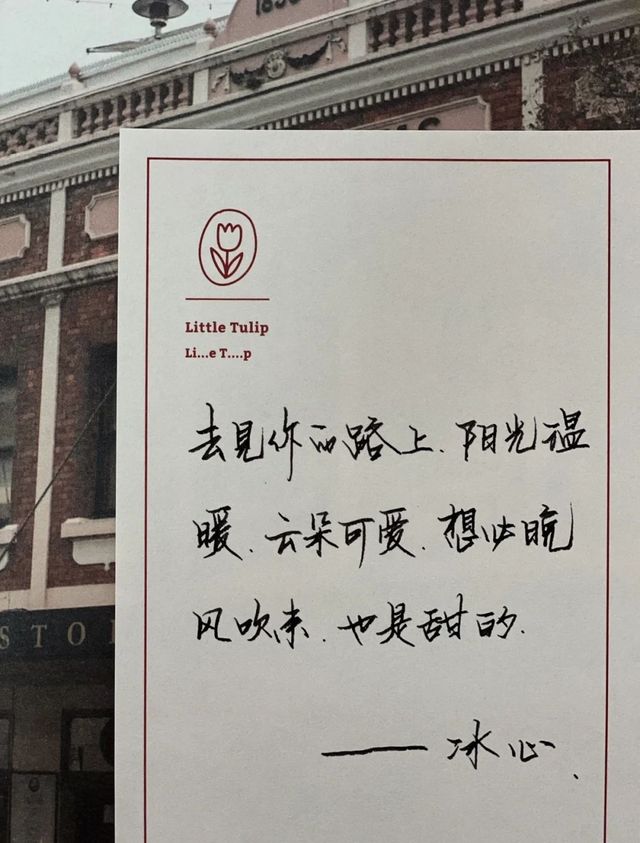 Little Tulip
Li...e T....p
去见你的路上.阳光温
暖.云朵可爱.想必晚
风吹来.也是甜的.
——冰心
STO